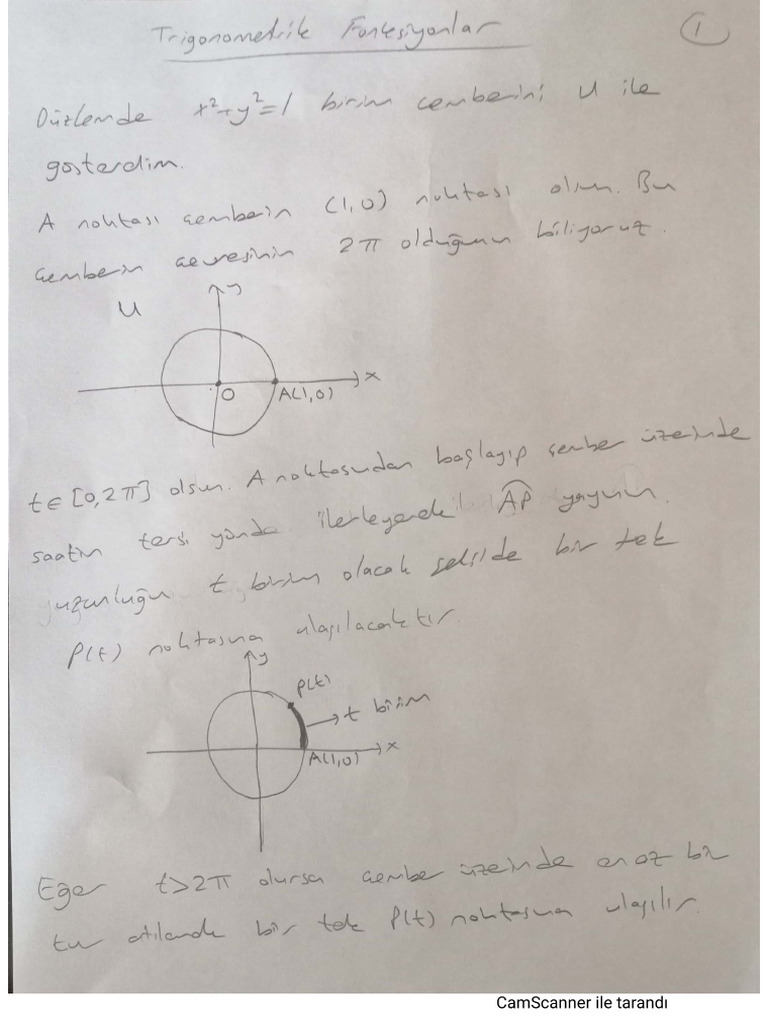 Trigonometrik Fonksiyonlar
1
Düzlemde x²+y²=1 birim çemberini U ile
gösterelim.
A noktası çemberin (1,0) noktası olsun. Bu
çemberin çevresinin 2π olduğunu biliyoruz.
U
y
x
O
A(1,0)
t∈[0,2π] olsun. A noktasından başlayıp çember üzerinde
saatin tersi yönde ilerleyerek AP yayının
uzunluğu t birim olacak şekilde bir tek
P(t) noktasına ulaşılacaktır.
y
P(t)
→ t birim
x
A(1,0)
Eğer t>2π olursa çember üzerinde en az bir
tur atılarak bir tek P(t) noktasına ulaşılır.
CamScanner ile tarandı